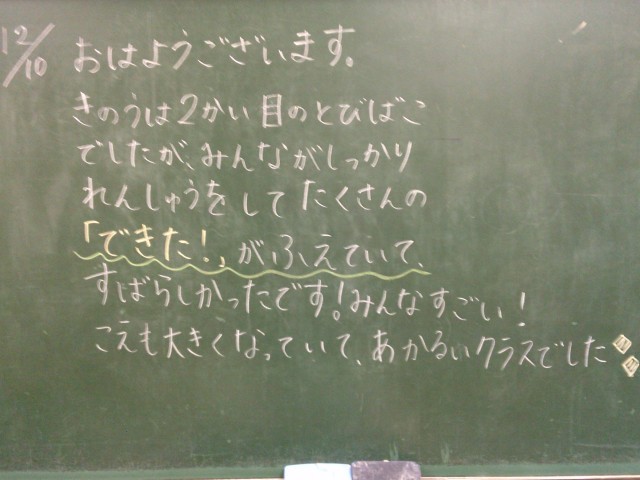 12/10 おはようございます。
きのうは2かい目のとびばこ
でしたが、みんながしっかり
れんしゅうをしてたくさんの
「できた!」がふえていて、
すばらしかったです!みんなすごい!
こえも大きくなっていて、あかるいクラスでした